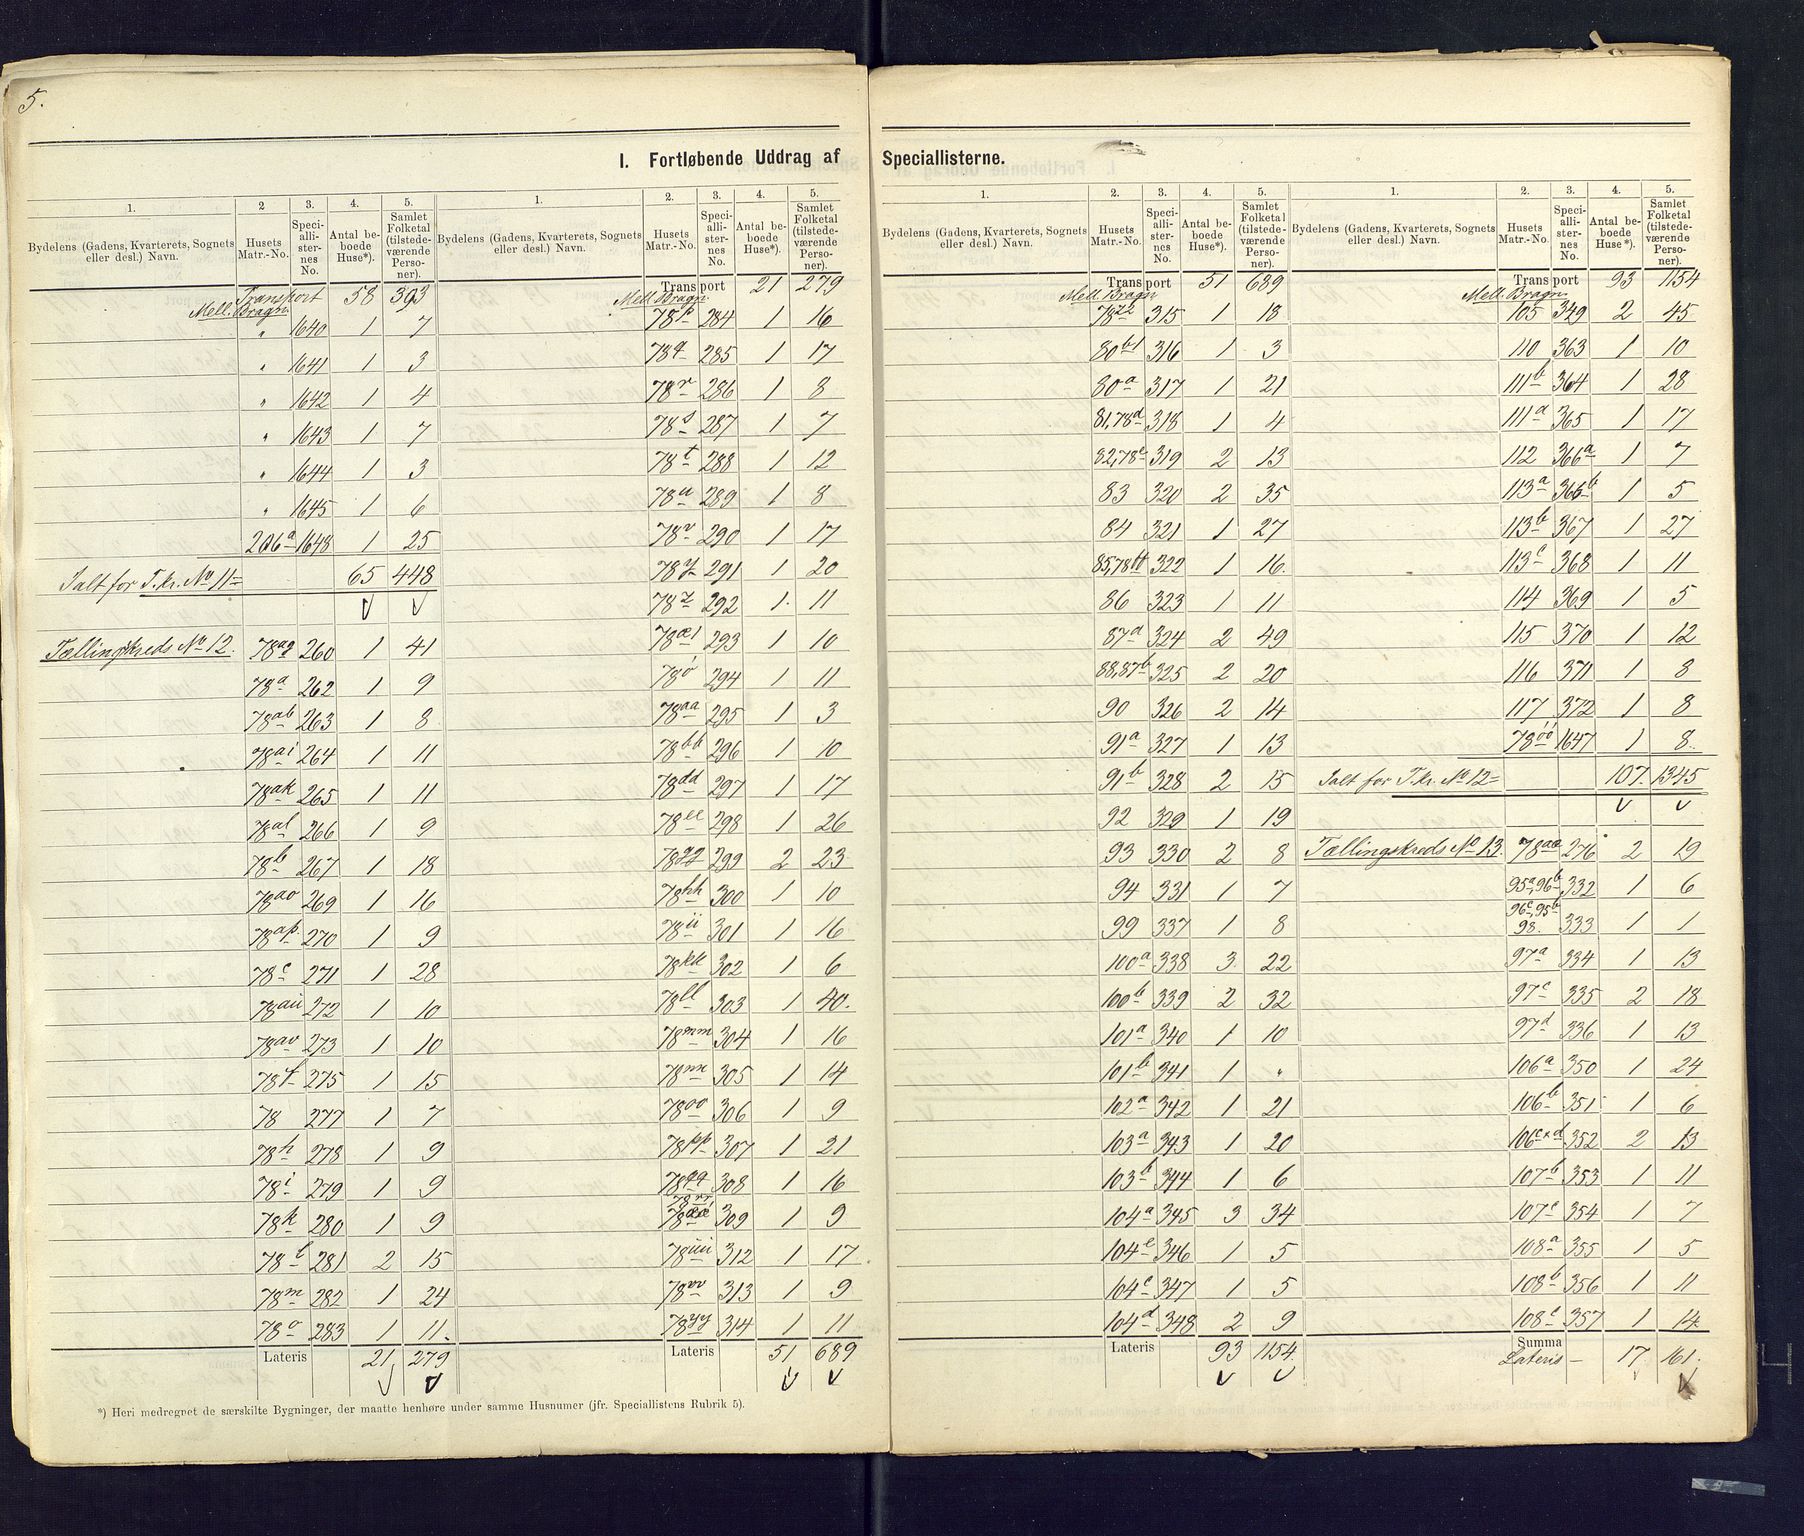 5.
I. Fortløbende Uddrag af Speciallisterne.
1. 2 3. 4. 5.
Bydelens (Gadens, Kvarterets, Sognets eller desl.) Navn. Husets Matr.-No. Speciallisternes No. Antal beboede Huse*). Samlet Folketal (tilstedeværende Personer).
Transport 58 393
Mell. Bragn.
" 1640 1 7
" 1641 1 3
" 1642 1 4
" 1643 1 7
" 1644 1 3
" 1645 1 6
206a 1648 1 25
Ialt for T.kr. No 11 = 65 448
Tællingskreds No 12. 78ag 260 1 41
78a 262 1 9
78ab 263 1 8
78ai 264 1 11
78ak 265 1 11
78al 266 1 9
78b 267 1 18
78ao 269 1 16
78ap 270 1 9
78c 271 1 28
78au 272 1 10
78av 273 1 10
78f 275 1 15
78 277 1 7
78h 278 1 9
78i 279 1 9
78k 280 1 9
78l 281 2 15
78m 282 1 24
78o 283 1 11.
Lateris 21 279
1. 2. 3. 4. 5.
Bydelens (Gadens, Kvarterets, Sognets eller desl.) Navn. Husets Matr.-No. Speciallisternes No. Antal beboede Huse*). Samlet Folketal (tilstedeværende Personer).
Transport 21 279
Mell. Bragn.
78p 284 1 16
78q 285 1 17
78r 286 1 8
78s 287 1 7
78t 288 1 12
78u 289 1 8
78v 290 1 17
78y 291 1 20
78z 292 1. 11
78æ1 293 1 10
78ø 294 1 11
78aa 295 1 3
78bb 296 1 10
78dd 297 1 17
78ee 298 1 26
78gg 299 2 23
78hh 300 1 10
78ii 301 1 16
78kk 302 1 6
78ll 303 1 40.
78mm 304 1 16
78nn 305 1 14
78oo 306 1 9
78pp 307 1 21
78qq 308 1 16
78rr,
78ææ 309 1 9
78uu 312 1 17
78vv 313 1 9
78yy 314 1 11
Lateris 51 689
*) Heri medregnet de særskilte Bygninger, der maatte henhøre under samme Husnumer (jfr. Speciallistens Rubrik 5).
1. 2. 3. 4. 5.
Bydelens (Gadens, Kvarterets, Sognets eller desl.) Navn. Husets Matr.-No. Speciallisternes No. Antal beboede Huse*). Samlet Folketal (tilstedeværende Personer).
Transport 51 689
Mell. Bragn.
78zz 315 1 18
80b1 316 1 3
80a 317 1 21
81,78d 318 1 4
82,78e 319 2 13
83 320 2 35
84 321 1 27
85,78ff 322 1 16.
86 323 1 11
87a 324 2 49
88,87b 325 2 20
90 326 2 14
91a 327 1 13
91b 328 2 15
92 329 1 19
93 330 2 8
94 331 1 7
99 337 1 8
100a 338 3. 22
100b 339 2 32
101a 340 1 10
101b 341 1 "
102a 342 1 21
103a 343 1 20
103b 344 1 6
104a 345 3 34
104e 346 1 5
104c 347 1 5
104d 348 2 9
Lateris 93 1154.
1. 2. 3. 4. 5.
Bydelens (Gadens, Kvarterets, Sognets eller desl.) Navn. Husets Matr.-No. Speciallisternes No. Antal beboede Huse*). Samlet Folketal (tilstedeværende Personer).
Transport 93 1154
Mell. Bragn.
105 349 2 45
110 363 1 10
111b 364 1 28
111a 365 1 17
112 366a 1 7
113a 366b 1 5
113b 367 1 27
113c 368 1 11
114 369 1 5
115 370 1 12
116 371 1 8
117 372 1 8
78øø 1647 1 8.
Ialt for T.kr. No 12 = 107. 1345
Tællingskreds No 13. 78aa 276 2 19
95a,96b 332 1 6
96c,95b
98. 333 1 1
97a 334 1 13
97c 335 2 18
97d 336 1 13
106a 350 1 24
106b 351 1 6
106c+d 352 2 13
107b 353 1 11
107c 354 1 7
108a 355 1 5
108b 356 1 11
108c 357 1 14.
Summa
Lateris — 17 161.